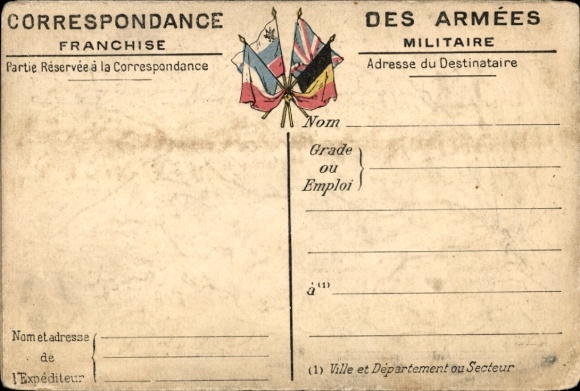 CORRESPONDANCE DES ARMÉES
FRANCHISE MILITAIRE
Partie Réservée à la Correspondance
Adresse du Destinataire
Nom
Grade
ou
Emploi
à (1)
Nom et adresse
de
l'Expéditeur
(1) Ville et Département ou Secteur